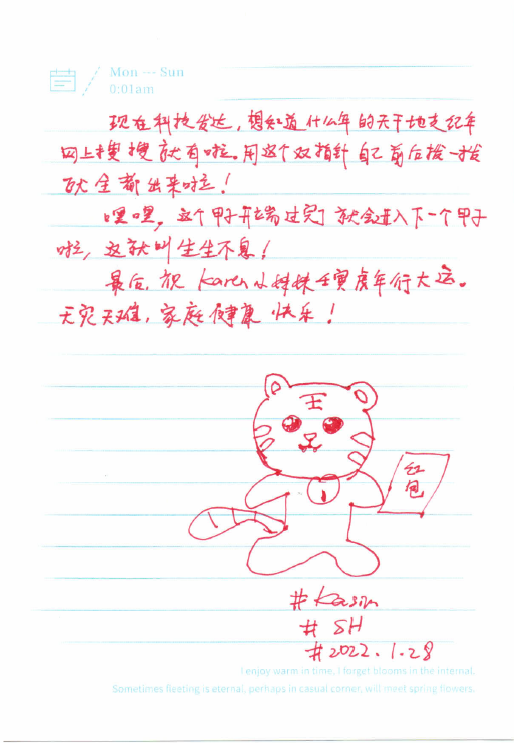 Mon --- Sun
0:01am
现在科技发达，想知道什么年的天干地支纪年
网上搜搜就有啦。用这个双指针自己前后拨一拨
就全都出来啦！
嘿嘿，这个甲子开端过完了就会进入下一个甲子
啦，这就叫生生不息！
最后，祝Karen小妹妹壬寅虎年行大运。
无灾无难，家庭健康快乐！
王
红
包
#Kasim
#SH
#2022.1.28
I enjoy warm in time, I forget blooms in the internal.
Sometimes fleeting is eternal, perhaps in casual corner, will meet spring flowers.